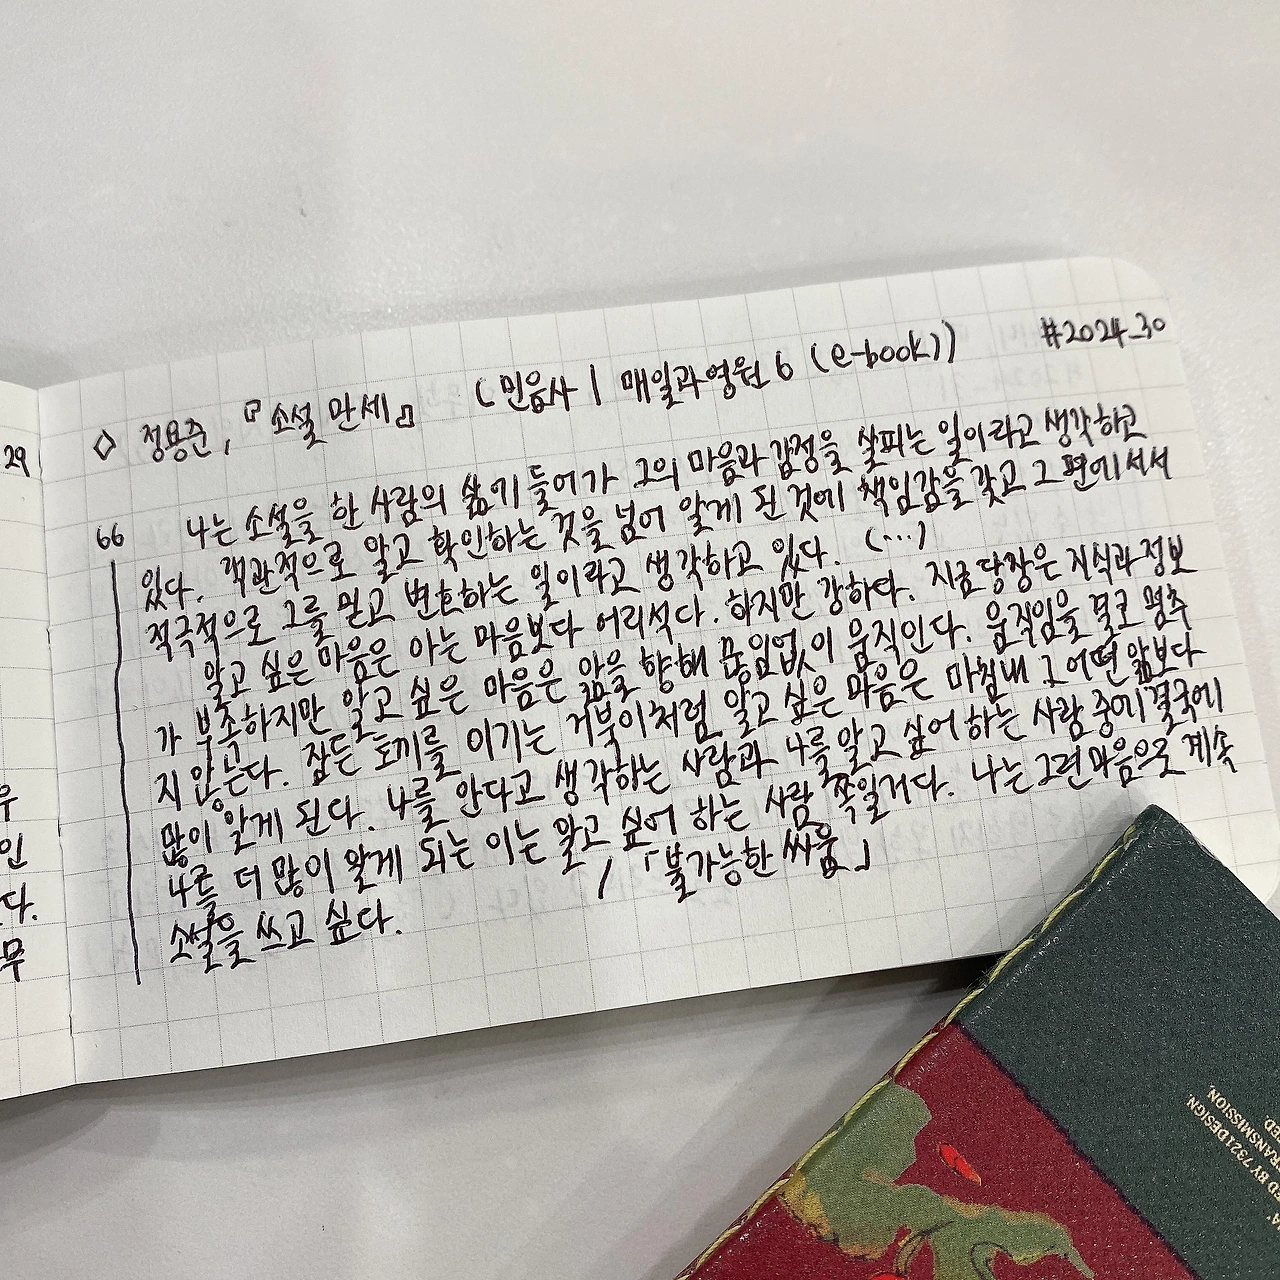 #2024_30
◇ 정용준, 『소설 만세』 (민음사 | 매일과영원 6 (e-book))
66 나는 소설을 한 사람의 삶에 들어가 그의 마음과 감정을 살피는 일이라고 생각하고
있다. 객관적으로 알고 확인하는 것을 넘어 알게 된 것에 책임감을 갖고 그 편에 서서
적극적으로 그를 믿고 변호하는 일이라고 생각하고 있다. (…)
알고 싶은 마음은 아는 마음보다 어리석다. 하지만 강하다. 지금 당장은 지식과 정보
가 부족하지만 알고 싶은 마음은 앎을 향해 끊임없이 움직인다. 움직임을 결코 멈추
지 않는다. 잠든 토끼를 이기는 거북이처럼 알고 싶은 마음은 마침내 그 어떤 앎보다
많이 알게 된다. 나를 안다고 생각하는 사람과 나를 알고 싶어 하는 사람 중에 결국에
나를 더 많이 알게 되는 이는 알고 싶어 하는 사람 쪽일거다. 나는 그런 마음으로 계속
소설을 쓰고 싶다. / 「불가능한 싸움」
29
우
인
다.
무
ED BY 7321DESIGN.
TRANSMISSION,